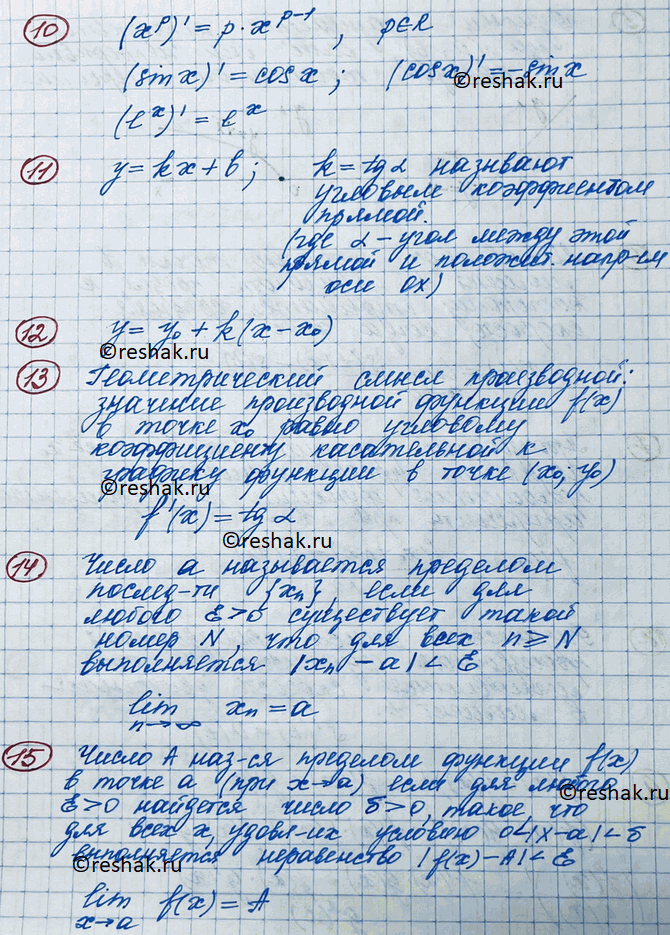 10 (xᵖ)' = p·xᵖ⁻¹, p∈R
(sin x)' = cos x; (cos x)' = -sin x
(eˣ)' = eˣ
11 y = kx + b; k = tg α называют
угловым коэффиентом
прямой.
(где α - угол между этой
прямой и положит. напр-ем
оси ox)
12 y = y₀ + k(x - x₀)
©reshak.ru
13 Геометрический смысл производной:
значение производной функции f(x)
в точке x₀ равно угловому
коэффициенту касательной к
графику функции в точке (x₀; y₀)
©reshak.ru
f'(x) = tg α
©reshak.ru
14 Число a называется пределом
послед-ти {xₙ}, если для
любого ε>0 существует такой
номер N, что для всех n ⩾ N
выполняется |xₙ - a| < ε
lim xₙ = a
n→∞
15 Число A наз-ся пределом функции f(x)
в точке a (при x→a) если для любого
ε>0 найдется число δ>0, такое, что
для всех x, удовл-их условию 0<|x-a|<δ
выполняется неравенство |f(x)-A|<ε
©reshak.ru
lim f(x) = A
x→a